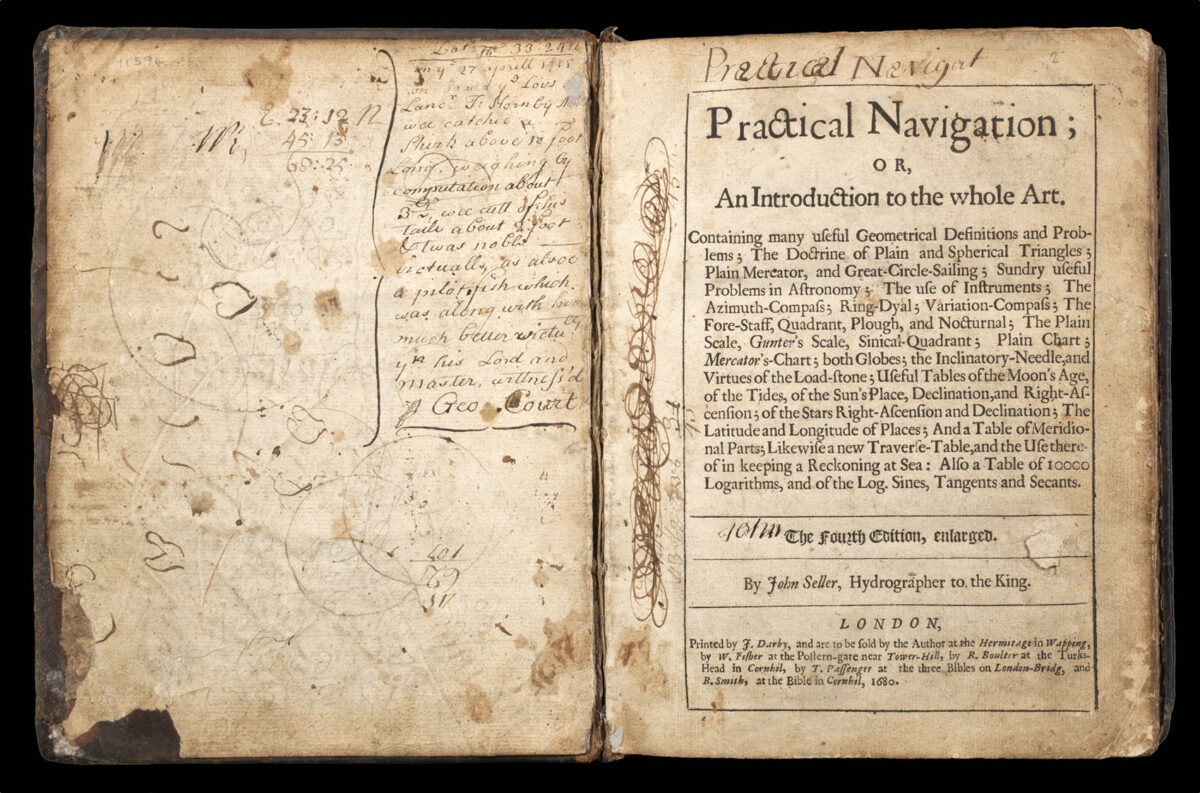 11594
E. 23:12 N
45:13
68:25
Lat 33:24
on yᵉ 27 aprill
on board yᵉ Lois
Lancʳ Tº Hornby Mʳ
wee catched a
Shirk above 10 foot
Long, weaghing by
computation about
wee cutt of his
taile about 2 foot
& twas noble
victually, as alsoe
a pilot fish which
was along with him
much better victu
yⁿ his Lord and
Master, wittness'd
Geo. Court
Practical Navigat
2
Practical Navigation;
OR,
An Introduction to the whole Art.
Containing many uſeful Geometrical Definitions and Prob-
lems; The Doctrine of Plain and Spherical Triangles;
Plain Mercator, and Great-Circle-Sailing; Sundry uſeful
Problems in Aſtronomy; The uſe of Inſtruments; The
Azimuth-Compaſs; Ring-Dyal; Variation-Compaſs; The
Fore-Staff, Quadrant, Plough, and Nocturnal; The Plain
Scale, Gunter's Scale, Sinical-Quadrant; Plain Chart;
Mercator's-Chart; both Globes; the Inclinatory-Needle,and
Virtues of the Load-ſtone; Uſeful Tables of the Moon's Age,
of the Tides, of the Sun's Place, Declination,and Right-Aſ-
cenſion; of the Stars Right-Aſcenſion and Declination; The
Latitude and Longitude of Places; And a Table of Meridio-
nal Parts; Likewiſe a new Traverſe-Table,and the Uſe there-
of in keeping a Reckoning at Sea: Alſo a Table of 10000
Logarithms, and of the Log. Sines, Tangents and Secants.
John
The Fourth Edition, enlarged.
By John Seller, Hydrographer to the King.
LONDON,
Printed by J. Darby, and are to be ſold by the Author at the Hermitage in Wapping,
by W. Fiſher at the Poſtern-gate near Tower-Hill, by R. Boulter at the Turks-
Head in Cornhil, by T. Paſſenger at the three Bibles on London-Bridg, and
R. Smith, at the Bible in Cornhil, 1680.